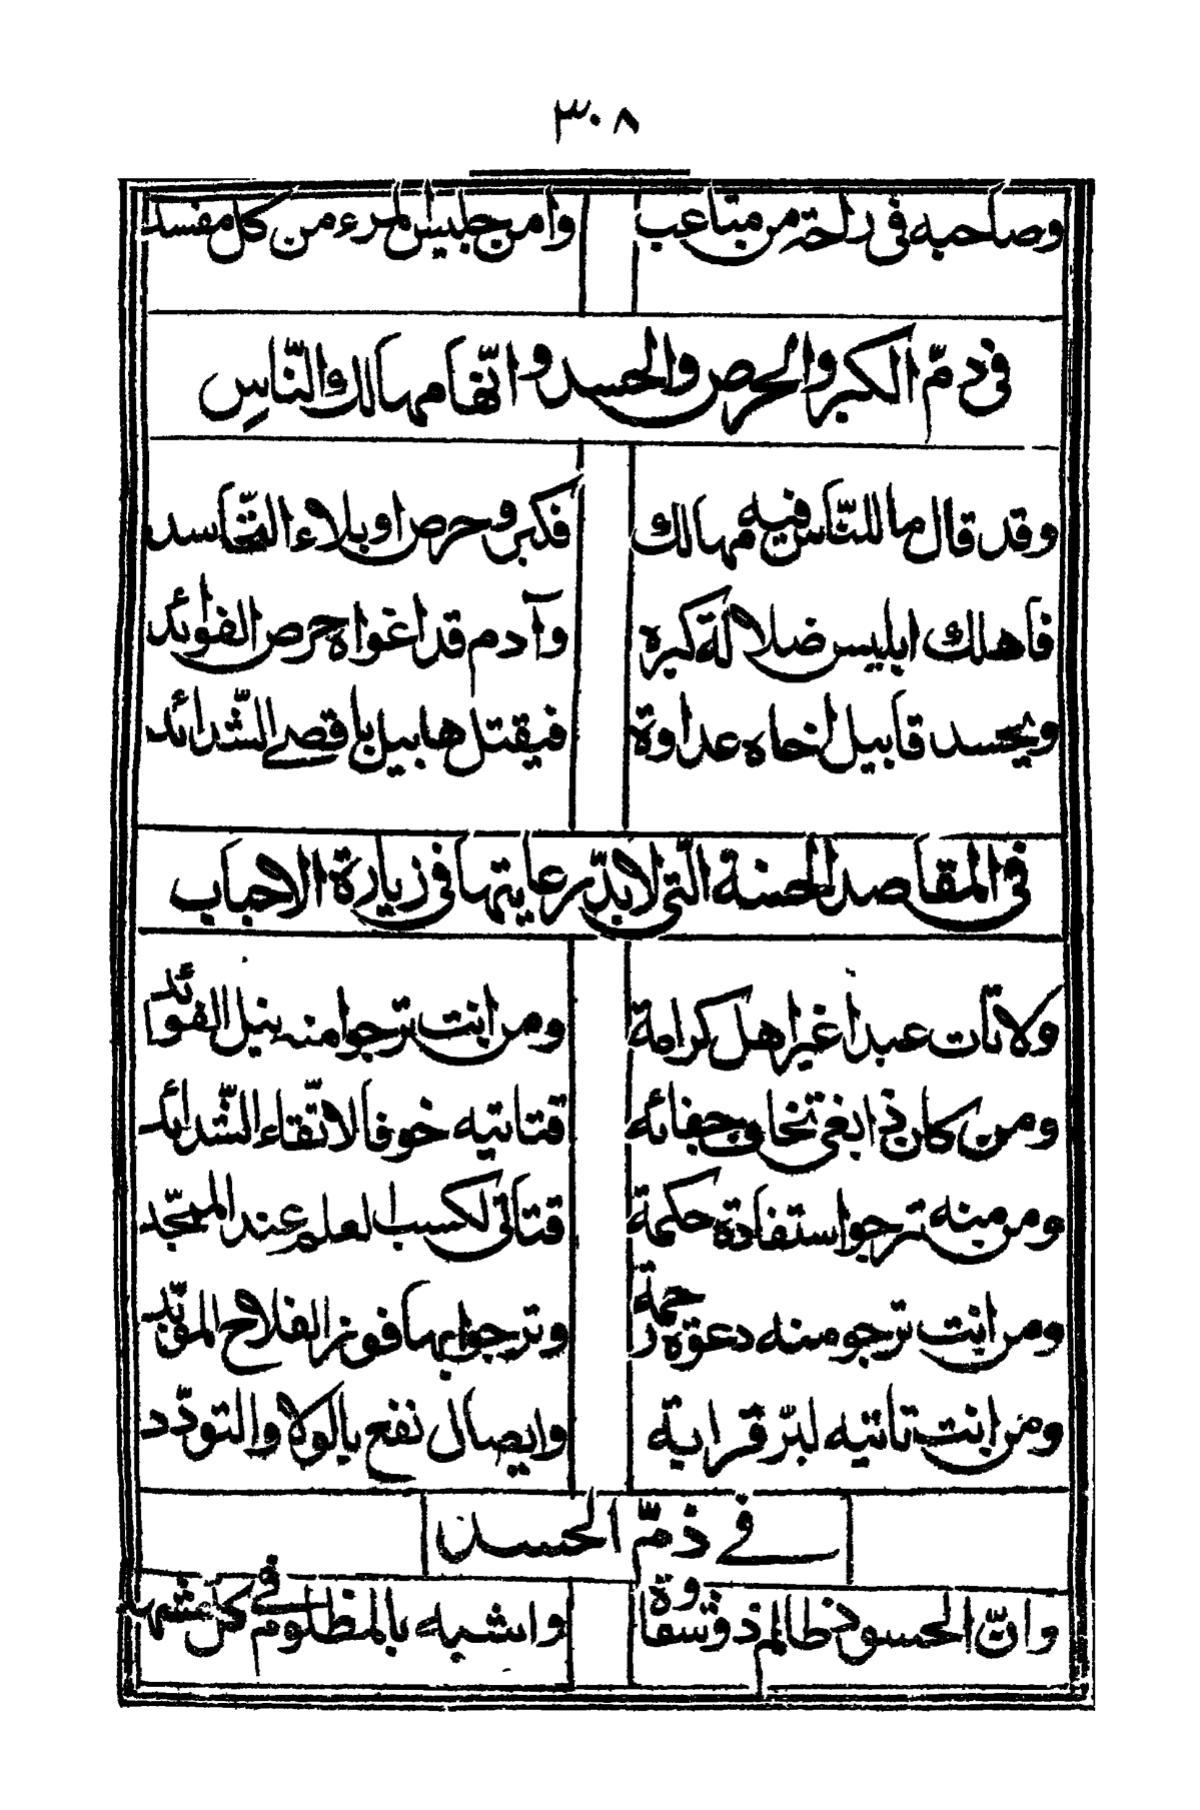 ٣٠٨
وصاحبه فی راحة من متاعب وامن جلیس المرء من کل مفسد
فی ذمّ الکبر والحرص والحسد و انّها مهالك النّاسِ
وقد قال ما للنّاس فیه مهالك فکبر وحرص او بلاء التّحاسد
فاهلك ابلیس ضلالة کبره وآدم قد اغواه حرص الفوائد
ویحسد قابیل لخاه عداوة فیقتل هابیل باقصی الشّدائد
فی المقاصد الحسنة الّتی لابدّ رعایتها فی زیارة الاحباب
ولاتات عبدا غیر اهل کرامة ومن انت ترجوا منه بنیل الفوئد
ومن کان ذا بغی تخاف جفائه فتاتیه خوفا لاتّقاء الشّدائد
ومن منه ترجوا استفادة حکمة فتاتی لکسب لعلم عند الممجّد
ومن انت ترجو منه دعوة رحمة وترجوا بها فوز الفلاح المؤبّد
ومن انت تاتیه لبرّ قرابة وایصال نفع بالولا والتودّد
فی ذمّ الحسد
وانّ الحسود ظالم ذو شقاوة واشبه بالمظلوم فی کل مشهد